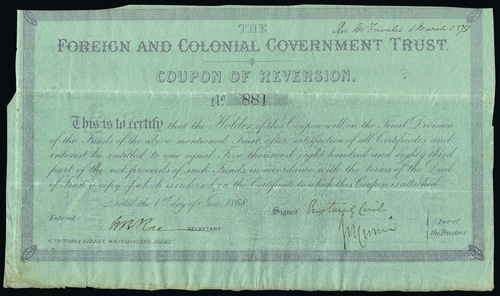 THE
FOREIGN AND COLONIAL GOVERNMENT TRUST.
COUPON OF REVERSION.
No 881
This is to certify that the Holder of this Coupon will on the Final Division
of the Funds of the above mentioned Trust, after satisfaction of all Certificates and
interest be entitled to one equal Five thousand eight hundred and eighty third
part of the net proceeds of such Funds, in accordance with the terms of the Deed
of Trust a copy of which is endorsed on the Certificate to which this Coupon is attached.
Dated the 1st day of June 1868.
Entered: SECRETARY
Signed
Two of the Trustees
6 VICTORIA STREET, WESTMINSTER ABBEY